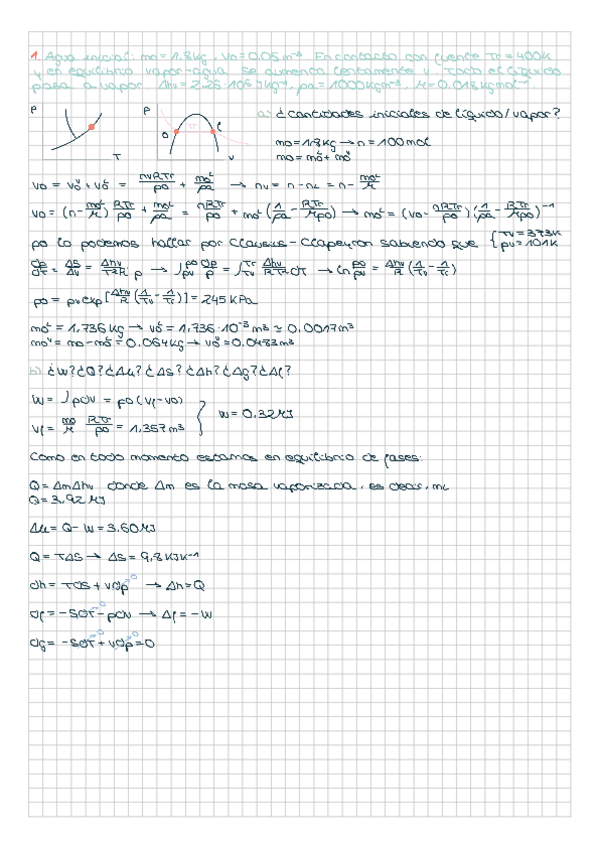 1. Agua inicial: m₀=1.8kg, V₀=0.05m⁻³ En contacto con fuente Tf=400K
y en equilibrio vapor-agua. Se aumenta lentamente y todo el líquido
pasa a vapor. Δhv=2.26·10⁶Jkg⁻¹, ρa=1000kgm⁻³, M=0.018kgmol⁻¹.
P P a) ¿cantidades iniciales de líquido/vapor?
0 f
m₀=1.8kg → n=100mol
T V m₀=m₀ᴸ+m₀ⱽ
V₀ = V₀ⱽ+V₀ᴸ = nvRTf/p₀ + m₀ᴸ/ρa → nv=n-nL=n-m₀ᴸ/M
V₀=(n-m₀ᴸ/M) RTf/p₀ + m₀ᴸ/ρa = nRTf/p₀ + m₀ᴸ(1/ρa - RTf/Mp₀) → m₀ᴸ=(V₀-nRTf/p₀)(1/ρa - RTf/Mp₀)⁻¹
p₀ lo podemos hallar por Clausius-Clapeyron sabiendo que { Tv=373K pv=101K
dp/dT = ΔS/ΔV = Δhv/T²R p → ∫pv p₀ dp/p = ∫Tv Tf Δhv/RT² dT → ln p₀/pv = Δhv/R (1/Tv - 1/Tf)
p₀ = pv exp[Δhv/R (1/Tv - 1/Tf)] = 245 KPa
m₀ᴸ = 1,736 kg → V₀ᴸ = 1,736·10⁻³ m³ ≃ 0.0017m³
m₀ⱽ = m₀-m₀ᴸ=0.064kg → V₀ⱽ=0.0483m³
b) ¿W?¿Q?¿Δu?¿ΔS?¿Δh?¿Δg?¿Δf?
W = ∫pdV = p₀(Vf-V₀)
W=0.32MJ
Vf = m₀/M RTf/p₀ = 1,357m³
Como en todo momento estamos en equilibrio de fases:
Q=ΔmΔhv donde Δm es la masa vaporizada, es decir, mL
Q=3.92MJ
Δu= Q-W=3.60MJ
Q=TΔS → ΔS=9,8KJK⁻¹
dh = TdS+Vdp⁰ → Δh=Q
df=-SdT⁰-pdV → Δf=-W
dg= -SdT⁰+Vdp⁰=0